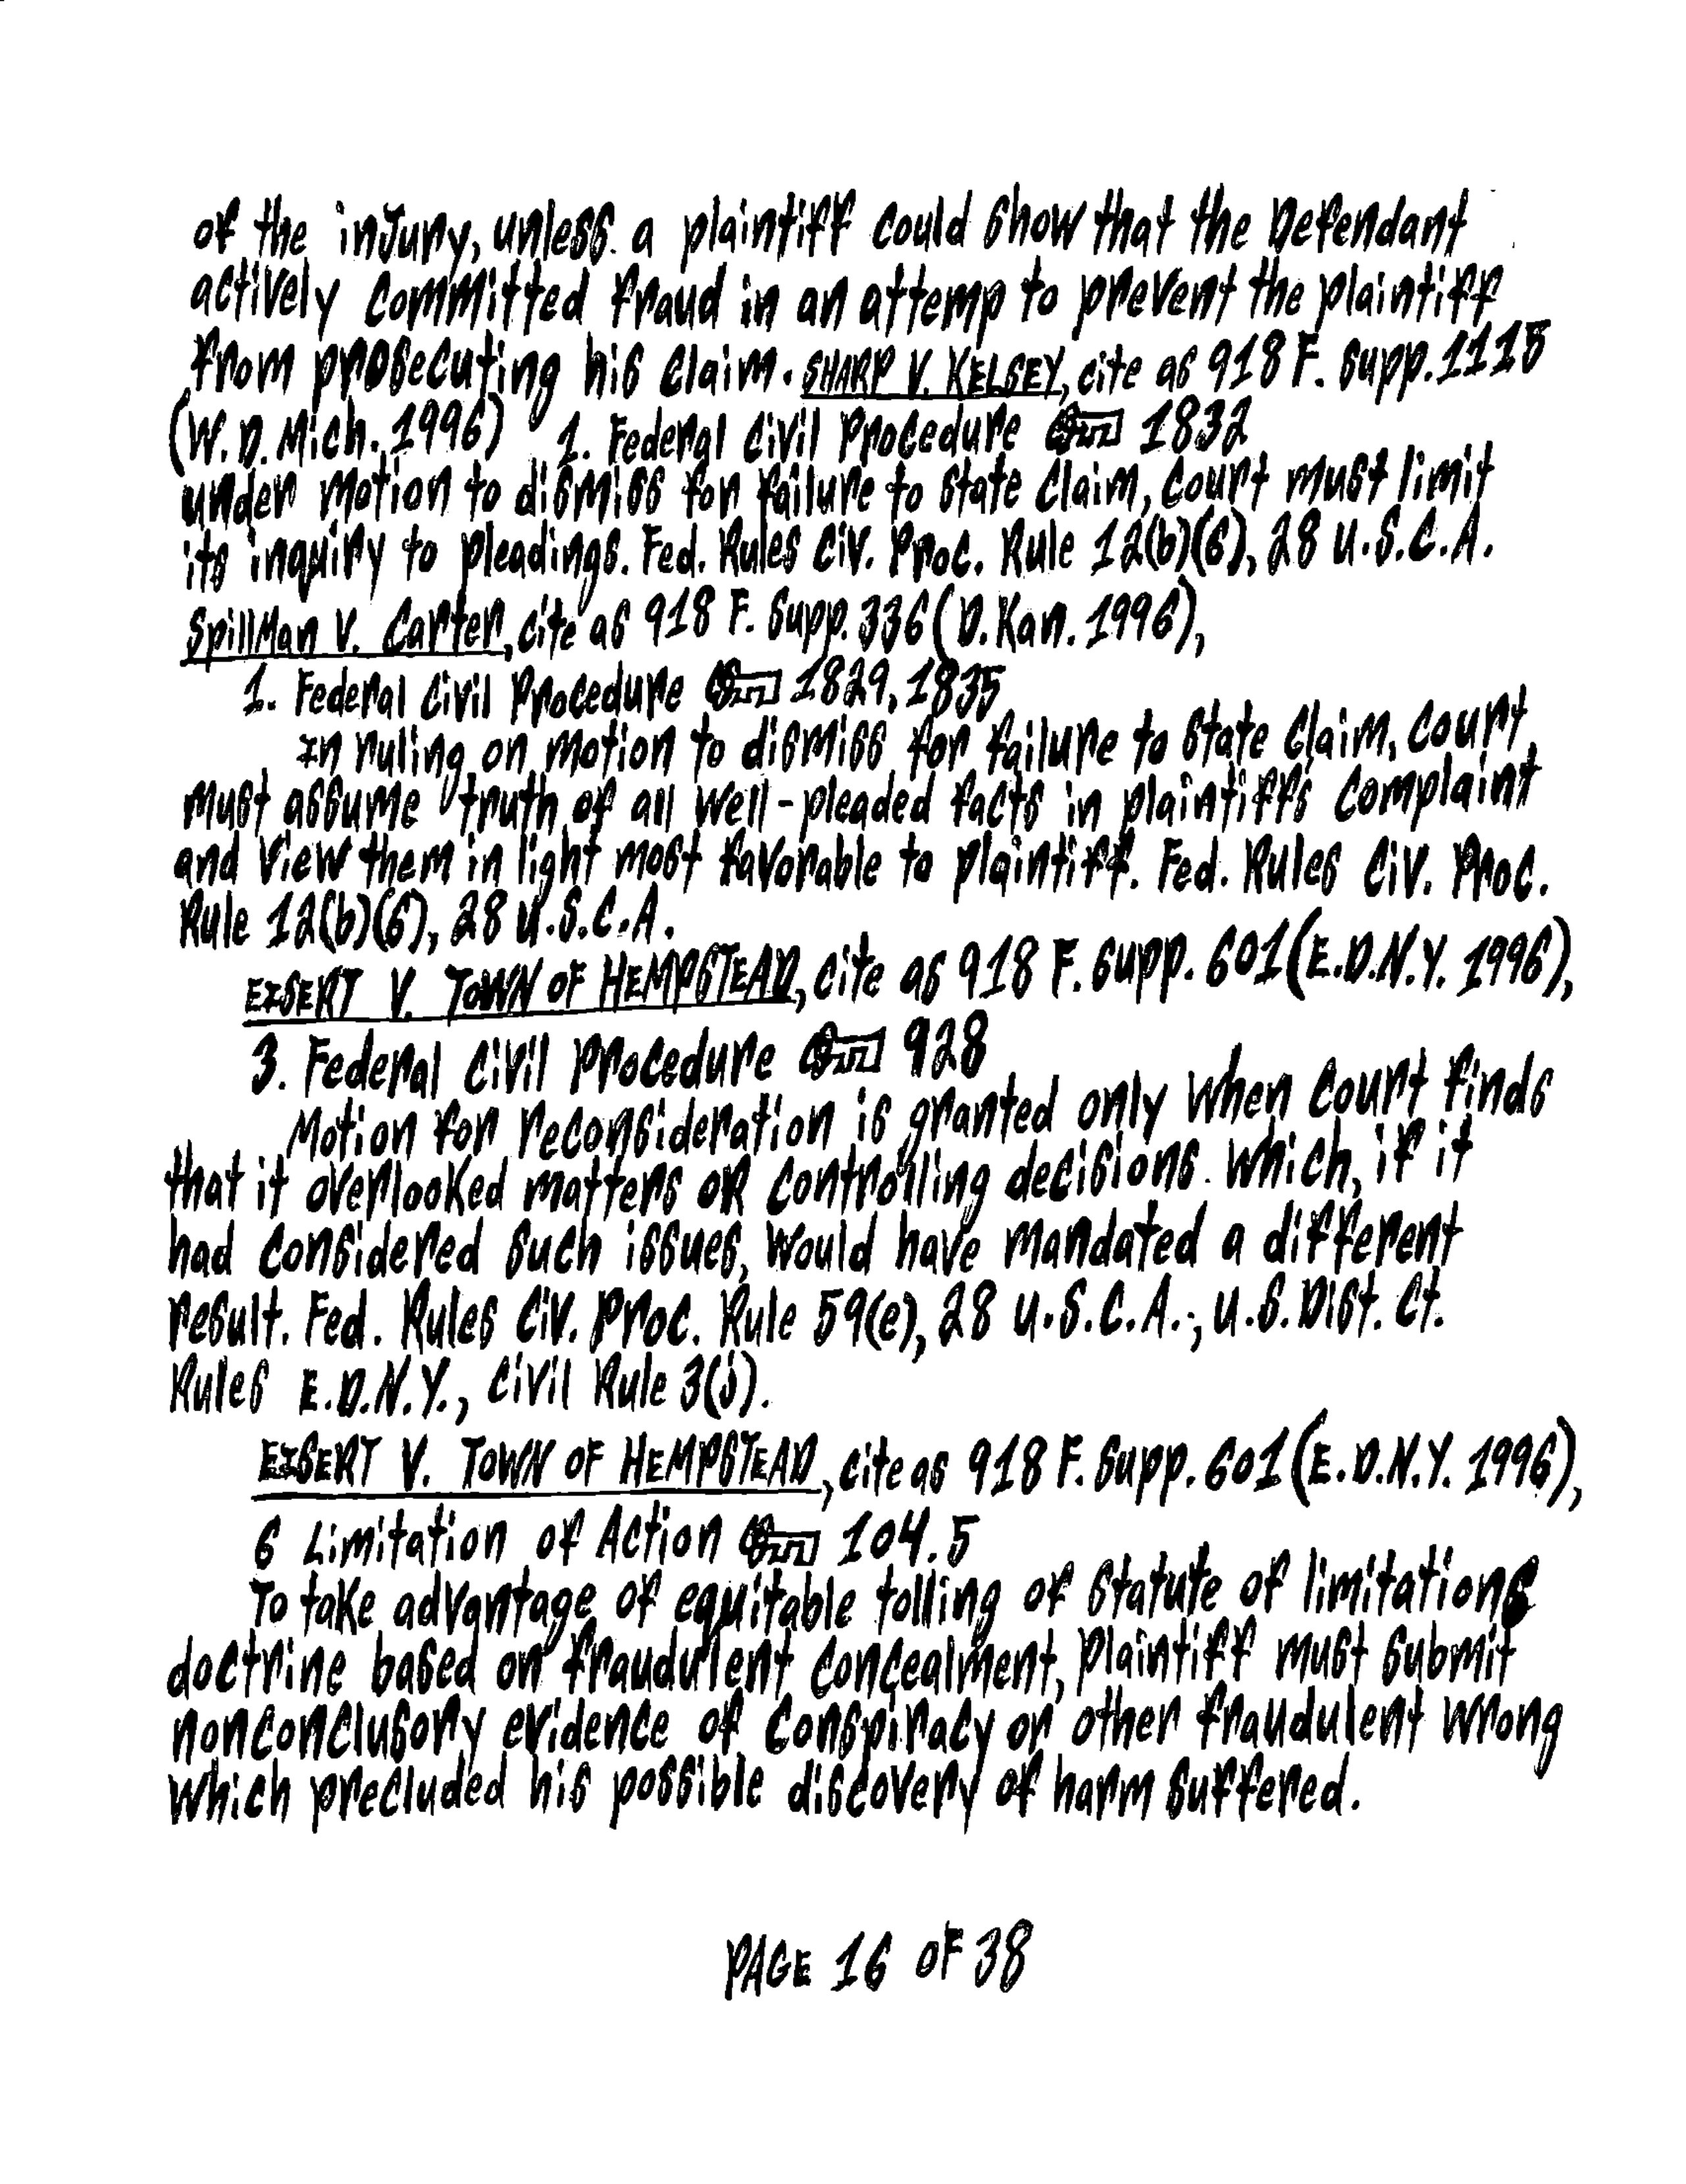 of the injury, unless a plaintiff could show that the Defendant
actively committed fraud in an attemp to prevent the plaintiff
from prosecuting his claim. SHARP V. KELSEY, cite as 918 F. Supp. 1115
(W.D. Mich. 1996) 1. Federal Civil Procedure 1832
under motion to dismiss for failure to state claim, court must limit
its inquiry to pleadings. Fed. Rules Civ. Proc. Rule 12(b)(6), 28 U.S.C.A.
Spillman V. Carter, cite as 918 F. Supp. 336 (D. Kan. 1996),
1. Federal Civil Procedure 1829, 1835
In ruling on motion to dismiss for failure to state claim, court
must assume truth of all well-pleaded facts in plaintiffs complaint
and view them in light most favorable to plaintiff. Fed. Rules Civ. Proc.
Rule 12(b)(6), 28 U.S.C.A.
EISERT V. TOWN OF HEMPSTEAD, cite as 918 F. Supp. 601 (E.D.N.Y. 1996),
3. Federal Civil Procedure 928
Motion for reconsideration is granted only when court finds
that it overlooked matters or controlling decisions which, if it
had considered such issues, would have mandated a different
result. Fed. Rules Civ. Proc. Rule 59(e), 28 U.S.C.A.; U.S. Dist. Ct.
Rules E.D.N.Y., Civil Rule 3(j).
EISERT V. TOWN OF HEMPSTEAD, cite as 918 F. Supp. 601 (E.D.N.Y. 1996),
6 Limitation of Action 104.5
To take advantage of equitable tolling of statute of limitations
doctrine based on fraudulent concealment, plaintiff must submit
nonconclusory evidence of conspiracy or other fraudulent wrong
which precluded his possible discovery of harm suffered.
PAGE 16 OF 38